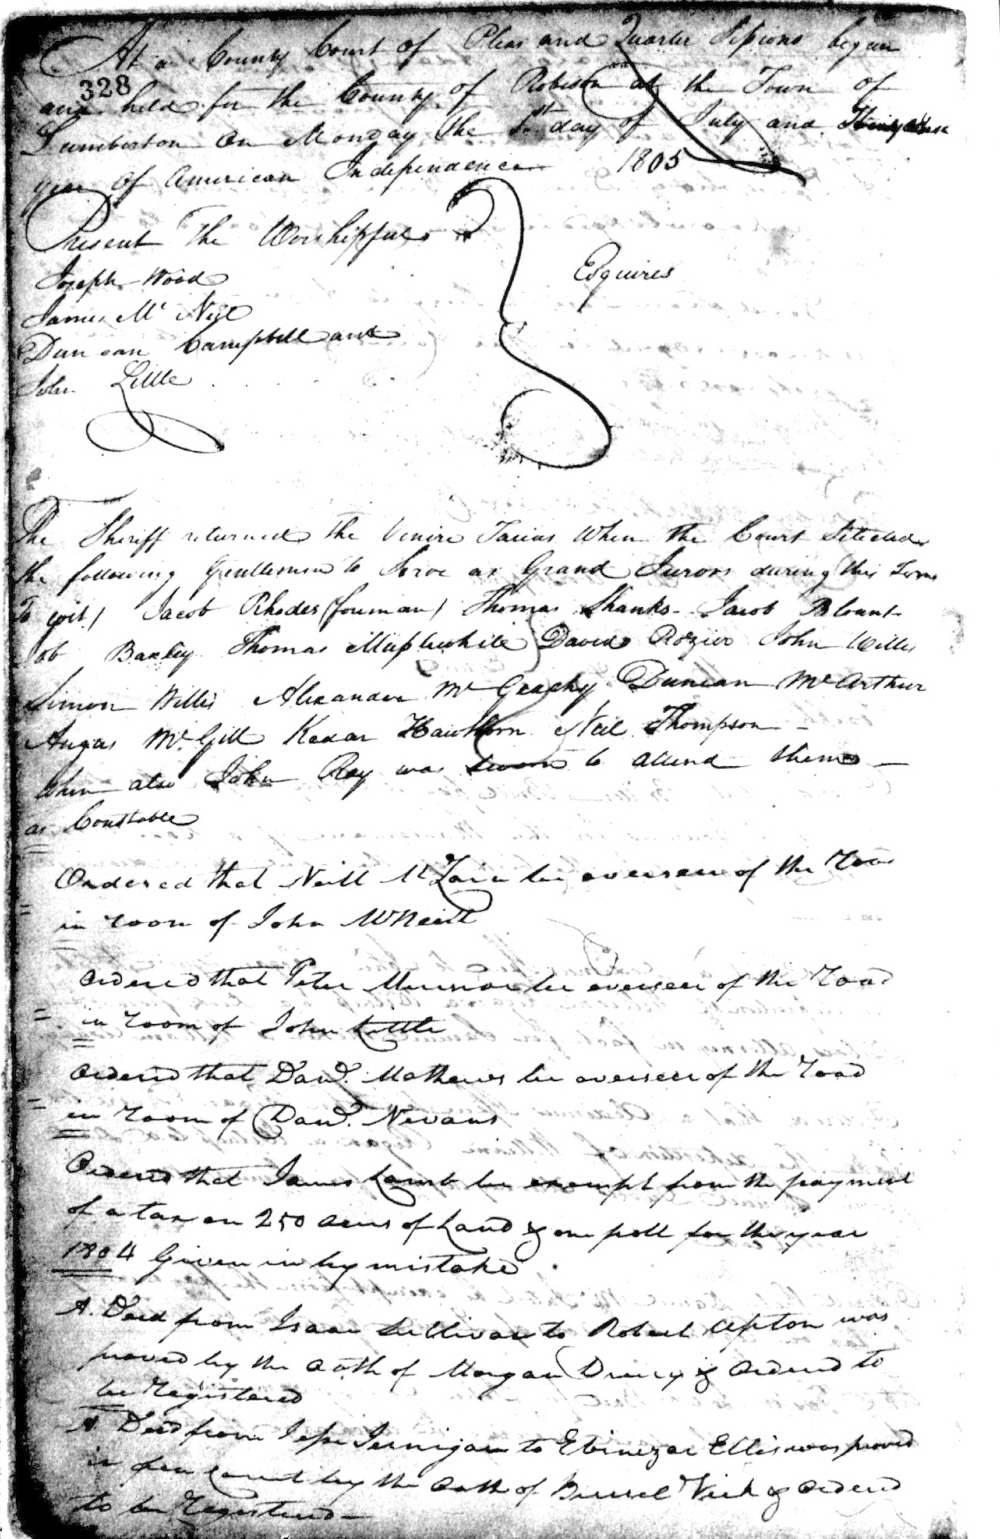 At a County Court of Pleas and Quarter Sessions began
328
and held for the County of Robeson at the Town of
Lumberton on Monday the 1st day of July and
year of American Independence 1805
Present The Worshipful
Joseph Wood
Esquires
James Mc Neil
Duncan Campbell and
John Little
The Sheriff returned the Venire Facias When the Court Selected
the following Gentlemen to Serve as Grand Jurors during this Term
To wit) Jacob Rhodes (foreman) Thomas Shanks - Jacob Blount
Job Baxley Thomas Muplewhite David Rozier John Willis
Simon Willis Alexander Mc Geachy Duncan McArthur
Angus McGill Kedar Hawthorn Neil Thompson -
When also John Ray was Sworn to attend them -
as Constable
Ordered that Neill Mc be overseer of the Road
in room of John McNeill
Ordered that Peter Munroe be overseer of the road
in room of John Little
Ordered that Dawd. Mathews be overseer of the road
in room of Dawd. Nevans
Ordered that James Lamb be exempt from the payment
of a tax on 250 acres of Land & one poll for the year
1804 Given in by mistake
A. Deed from Isaac Sullivan to Robert Upton was
proved by the oath of Morgan Drury & ordered to
be registered
A Deed from Jesse Jernigan to Ebinezar Ellis was proved
in open Court by the oath of Burrel Vick & ordered
to be Registered -